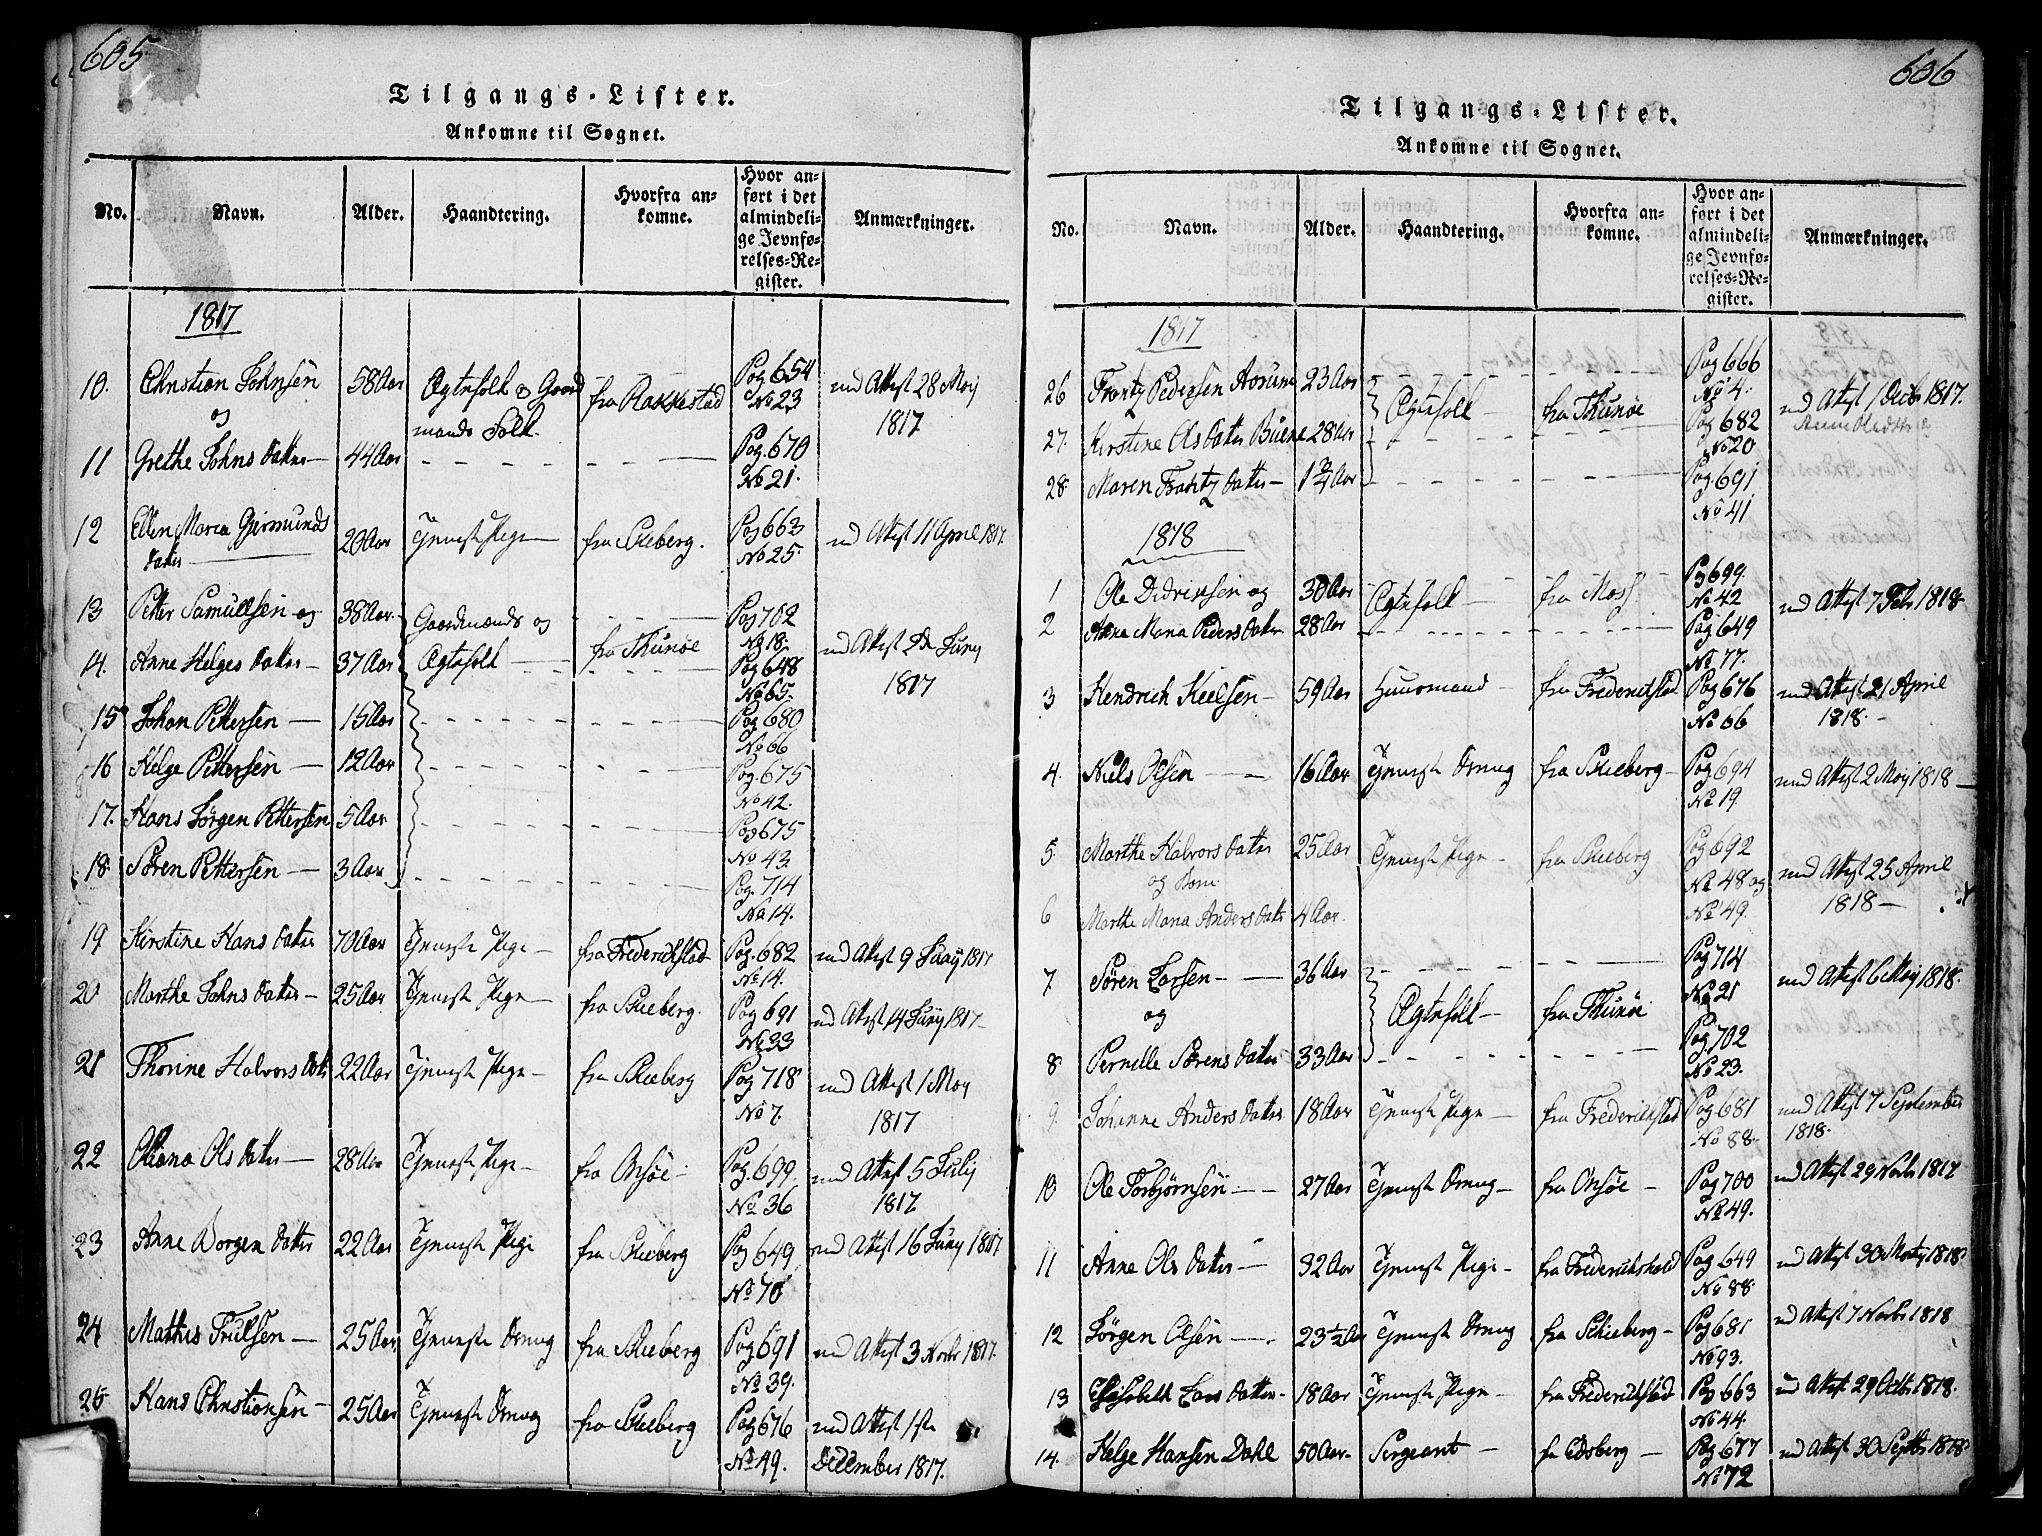 605.
Tilgangs-Lister.
Ankomne til Sognet.
No. Navn. Alder. Haandtering. Hvorfra ankomne. Hvor anført i det almindelige Jevnførelses-Register. Anmærkninger.
1817
10. Christian Johnsen 58 Aar Ægtefolk og Gaard fra Rakkestad Pag 654 No 23 med Attest 28 Maj 1817
og mands Folk.
11 Grethe Johns datter 44 Aar Pag. 670 No 21.
12 Ellen Maria Gjermunds datter 20 Aar Tjeneste Pige fra Skieberg. Pag 663 No 25 med Attest 11 April 1817.
13 Petter Samuelsen og 38 Aar. Gaardmænds og Pag 702 No 18.
14. Anne Helges datter 37 Aar Ægtefolk fra Thunøe Pag 648 No 65. med Attest Juny 1817
15 Johan Pettersen 15 Aar Pag 680 No 66
16 Helge Pettersen 12 Aar Pag 675 No 42.
17. Hans Jörgen Pettersen 5 Aar Pag 675 No 43
18. Sören Pettersen 3 Aar Pag. 714 No 14.
19 Kirstine Hans datter 70 Aar Tjeneste Pige fra Frederikstad Pag. 682 No 14. med Attest 9 1817
20 Marthe Johns datter 25 Aar Tjeneste Pige fra Skieberg. Pag 691 No 33 med Attest 14 Juny 1817
21 Thorine Halvors datter 22 Aar Tjeneste Pige fra Skieberg Pag 718 No 7. med Attest 1 Maj 1817
22 Oleana Ols datter 28 Aar Tjeneste Pige fra Onsøe Pag. 699 No 36 med Attest 5 July 1817
23 Anne Borgen datter 22 Aar Tjeneste Pige fra Skieberg Pag 649 No 70 med Attest 16 Juny 1817
24 Mathis Truelsen 25 Aar Tjeneste Dreng fra Skieberg Pag 691 No 39. med Attest 3 Novbr 1817.
25 Hans Christiansen 25 Aar Tjeneste Dreng fra Skieberg Pag 676 No 49. med Attest 1ste December 1817.
606
Tilgangs-Lister.
Ankomne til Sognet.
No. Navn. Alder. Haandtering. Hvorfra ankomne. Hvor anført i det almindelige Jevnførelses-Register. Anmærkninger.
1817
26 Frantz Pedersen 23 Aar Pag 666 No 4.
Ægtefolk fra Thunøe med Attest 1 Decbr 1817.
27. Kirstine Olsdatter 28 Aar Pag 682 No 20
28. Maren Frantz datter 1 3/4 Aar Pag 691 No 41
1818
1 Ole Didriksen og 30 Aar Ægtefolk fra Moss Pag 699. No 42 med Attest 7 Febr 1818.
2 Anne Maria Peders datter 28 Aar Pag 649 No 77.
3 Hendrich Keelsen 59 Aar Huusmand fra Frederikstad Pag 676 No 66 med Attest 21 April 1818.
4. Niels Olsen 16 Aar Tjeneste Dreng fra Skieberg Pag 694 No 19. med Attest 2 Maj 1818
5. Marthe Halvors datter 25 Aar Tjeneste Pige fra Skieberg Pag 692 No 48 og med Attest 25 April 1818
og Barn
6 Marthe Maria Anders datter 4 Aar. No 49.
7. Sören Larsen 36 Aar Pag 714 No 21 med Attest 6 Maj 1818.
og Ægtefolk fra Thunøe
8. Pernille Sörens datter 33 Aar Pag. 702 No 23.
9. Johanne Anders datter 18 Aar Tjeneste Pige fra Frederikstad Pag 681 No 88. med Attest 7 September 1818.
10 Ole Torbjörnsen 27 Aar Tjeneste Dreng fra Onsøe Pag 700 No 49. med Attest 29 Novbr 1817
11 Anne Ols datter 32 Aar Tjeneste Pige fra Frederikshald Pag 649 No 88 med Attest 30 Marty 1818.
12 Jörgen Olsen 23 1/2 Aar Tjeneste Dreng fra Skieberg Pag 681 No 93. med Attest 7 Novbr 1818
13 Elisabeth Lars datter 18 Aar Tjeneste Pige fra Frederikstad Pag 663 No 44. med Attest 29 Octbr 1818.
14. Helge Hansen Dahl 50 Aar Sergeant fra Edsberg Pag 677 No 72 med Attest 30 Septbr 1818